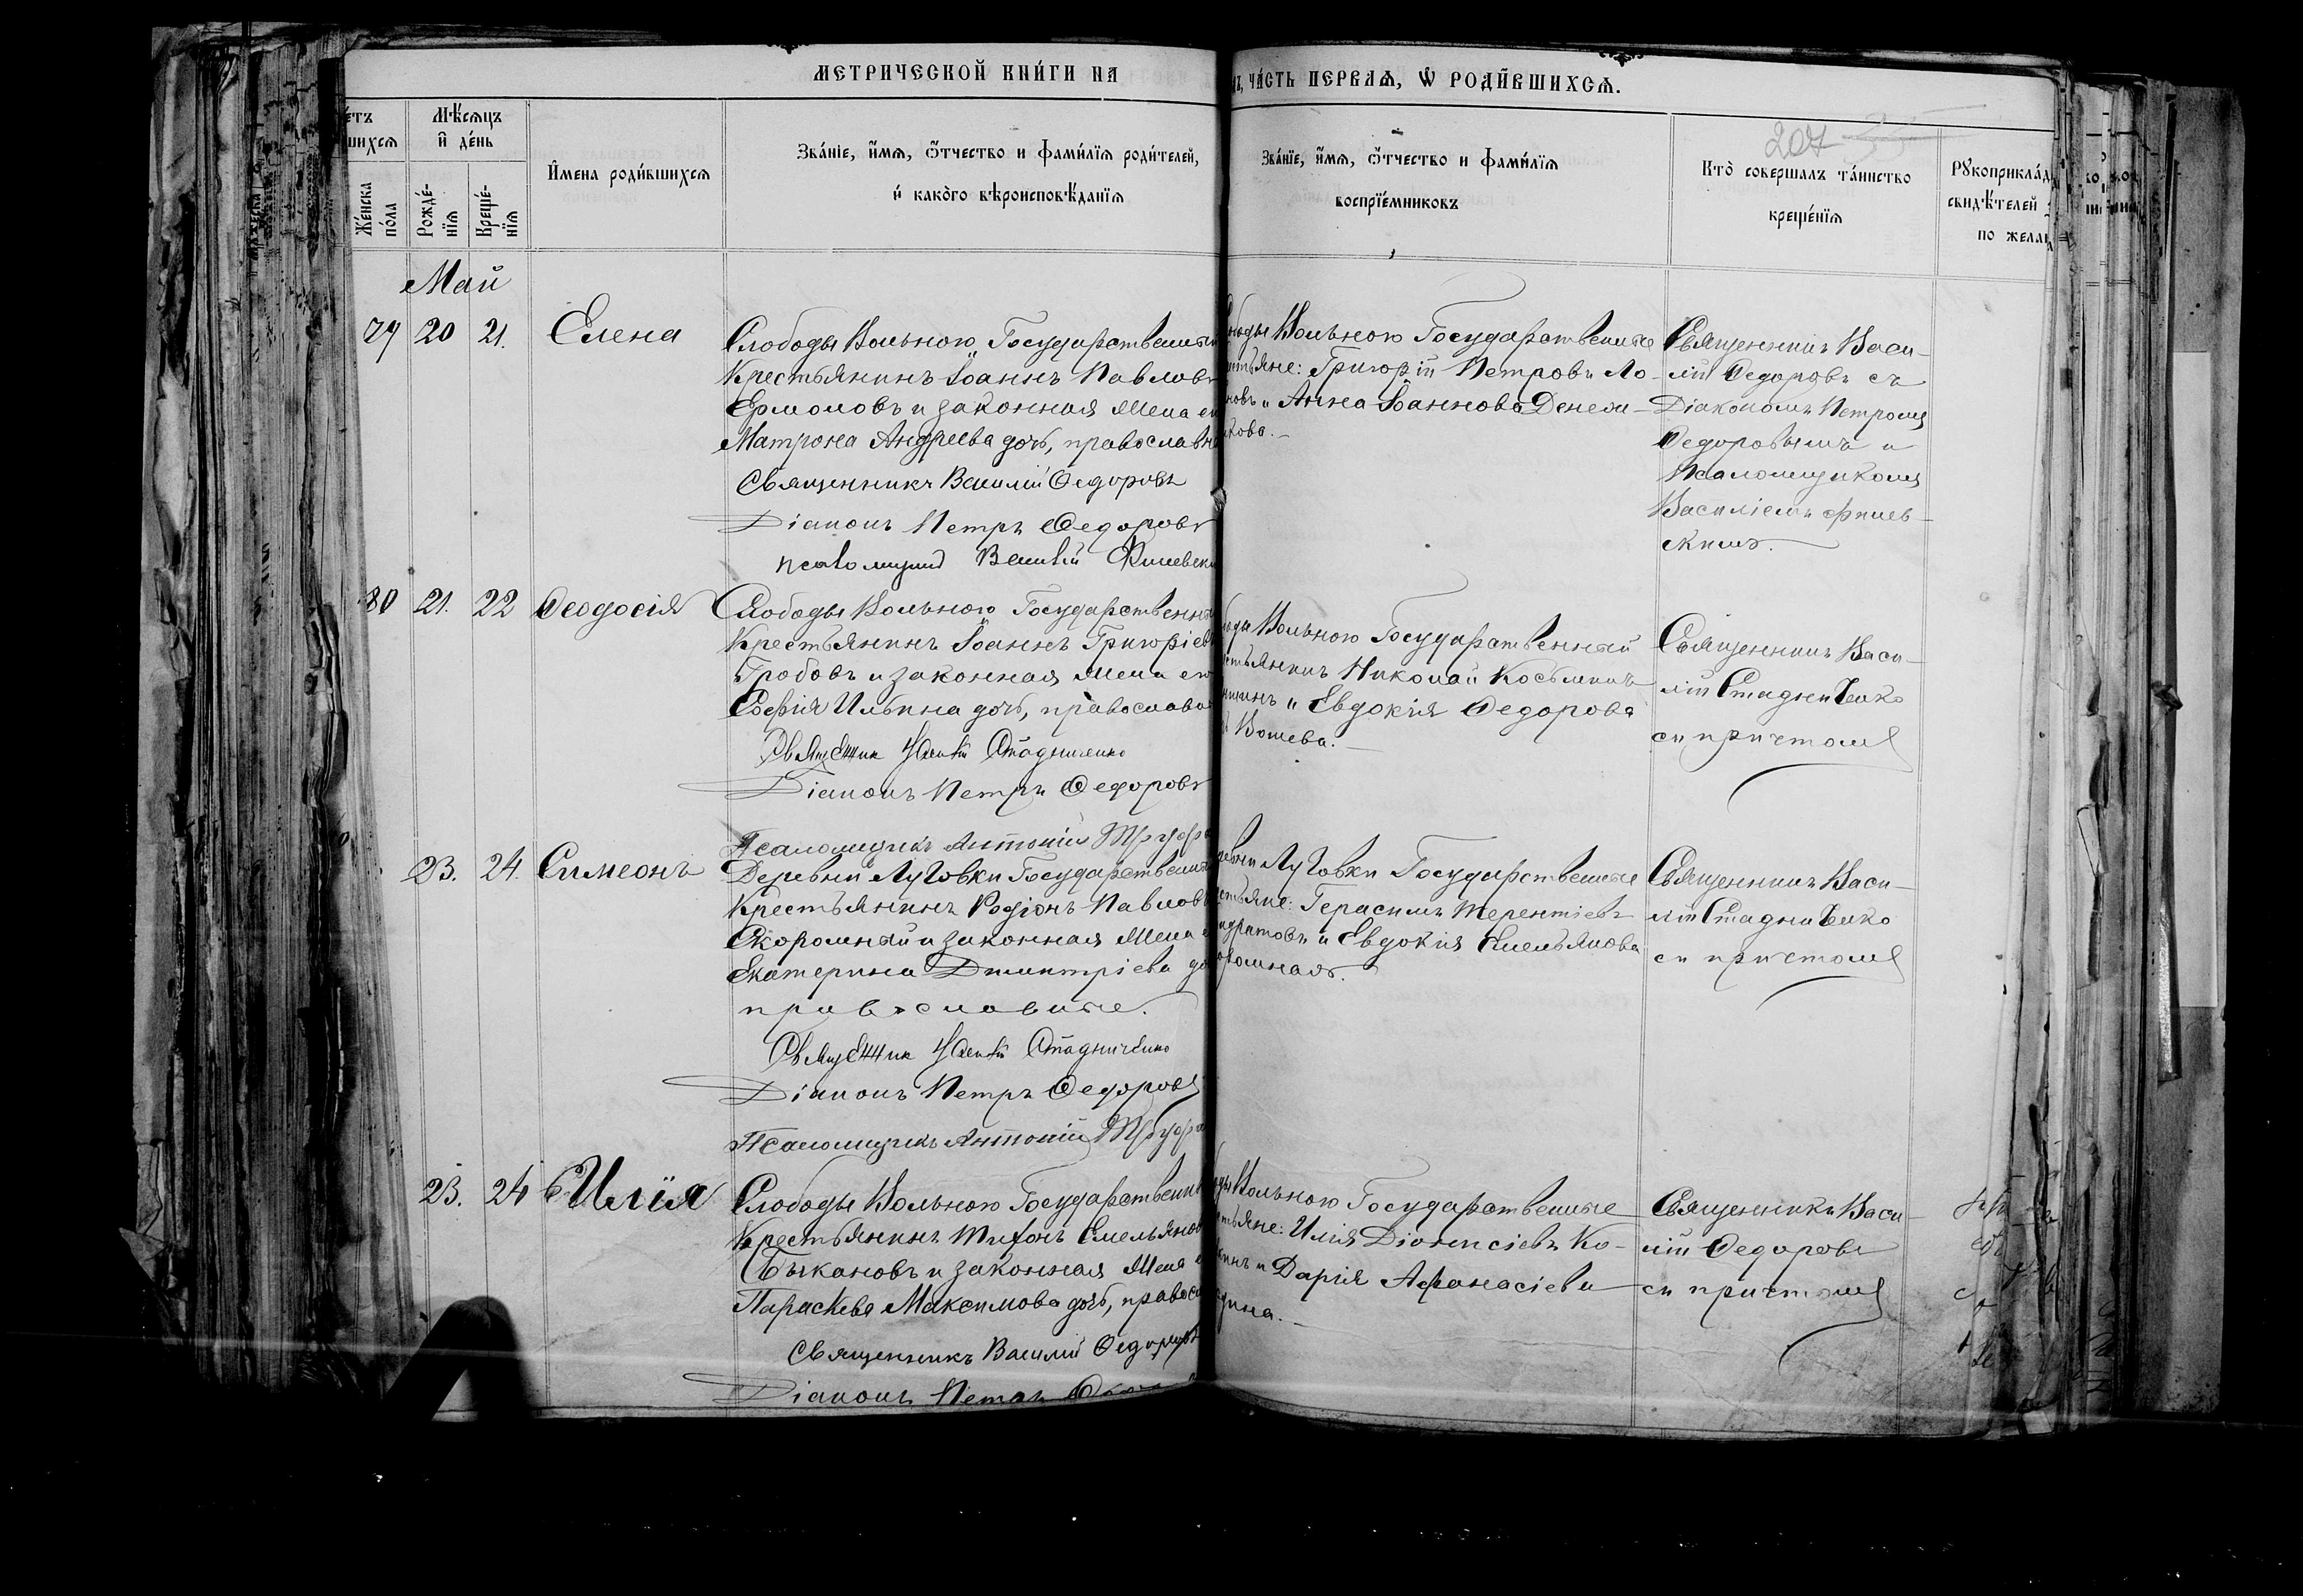 МЕТРИЧЕСКОЙ КНИ́ГИ НА
ЧА́СТЬ ПЕРВАѦ, Ѡ РОДИ́ВШИХСѦ.
207
Мѣ́сѧцъ
и де́нь
Же́нска
по́ла
Рожде́-
нїѧ
Креще́-
нїѧ
И҆мена роди́вшихсѧ
Зва́нїе, и҆́мѧ, ѻ҆́тчество и фами́лїѧ роди́телей,
и҆ како́го вѣроисповѣ́данїѧ
Зва́нїе, и҆́мѧ, ѻ҆́тчество и фами́лїѧ
воспрїе́мниковъ
Кто̀ совершалъ та́инство
креще́нїѧ
Рꙋкоприкла́д
свидѣ́телей
по жела
Май
79 20 21. Елена
Слободы Вольною Государственный
Крестьянинъ Іоаннъ Павловъ
Ермоловъ и законная жена его
Матрона Андреева дочь, православн
Священникъ Василій Ѳедоровъ
Діаконъ Петръ Ѳедоровъ
Псаломщикъ Василій Финевски
Вольною Государственные
Григорій Петровъ Ло-
новъ и Анна Іоаннова Денеж-
кова.
Священникъ Васи-
лій Ѳедоровъ съ
Діакономъ Петромъ
Ѳедоровымъ и
Псаломщикомъ
Василіемъ Финев-
скимъ.
80 21. 22 Ѳеодосія
Слободы Вольною Государственный
Крестьянинъ Іоаннъ Григоріевъ
Гробовъ и законная жена его
Софія Ильина дочь, православн
Священник Василій Стадниченко
Діаконъ Петръ Ѳедоровъ
Псаломщикъ Антоній
Вольною Государственный
Николай Косьминъ
и Евдокія Ѳедорова
Вошева.
Священникъ Васи-
лій Стадниченко
съ причтомъ
23. 24. Симеонъ
Деревни Луговки Государственный
Крестьянинъ Родіонъ Павловъ
Скоромный и законная жена е
Екатерина Димитріева до
православные.
Священник Василій Стадниченко
Діаконъ Петръ Ѳедоровъ
Псаломщикъ Антоній
Луговки Государственные
Герасимъ Терентіевъ
и Евдокія Емельянова
Священникъ Васи-
лій Стадниченко
съ причтомъ
23. 24 Илія
Слободы Вольною Государственн
Крестьянинъ Тифонъ Емельянов
Быкановъ и законная жена е
Параскева Максимова дочь, правосл
Священникъ Василій Ѳедоровъ
Діаконъ Петръ
Вольною Государственные
Илія Діонисіевъ Ко-
и Дарія Афанасіева
Священникъ Васи-
лій Ѳедоровъ
съ причтомъ